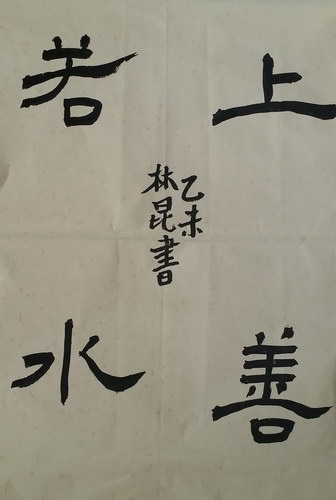 上善
若水
乙未
林昆書